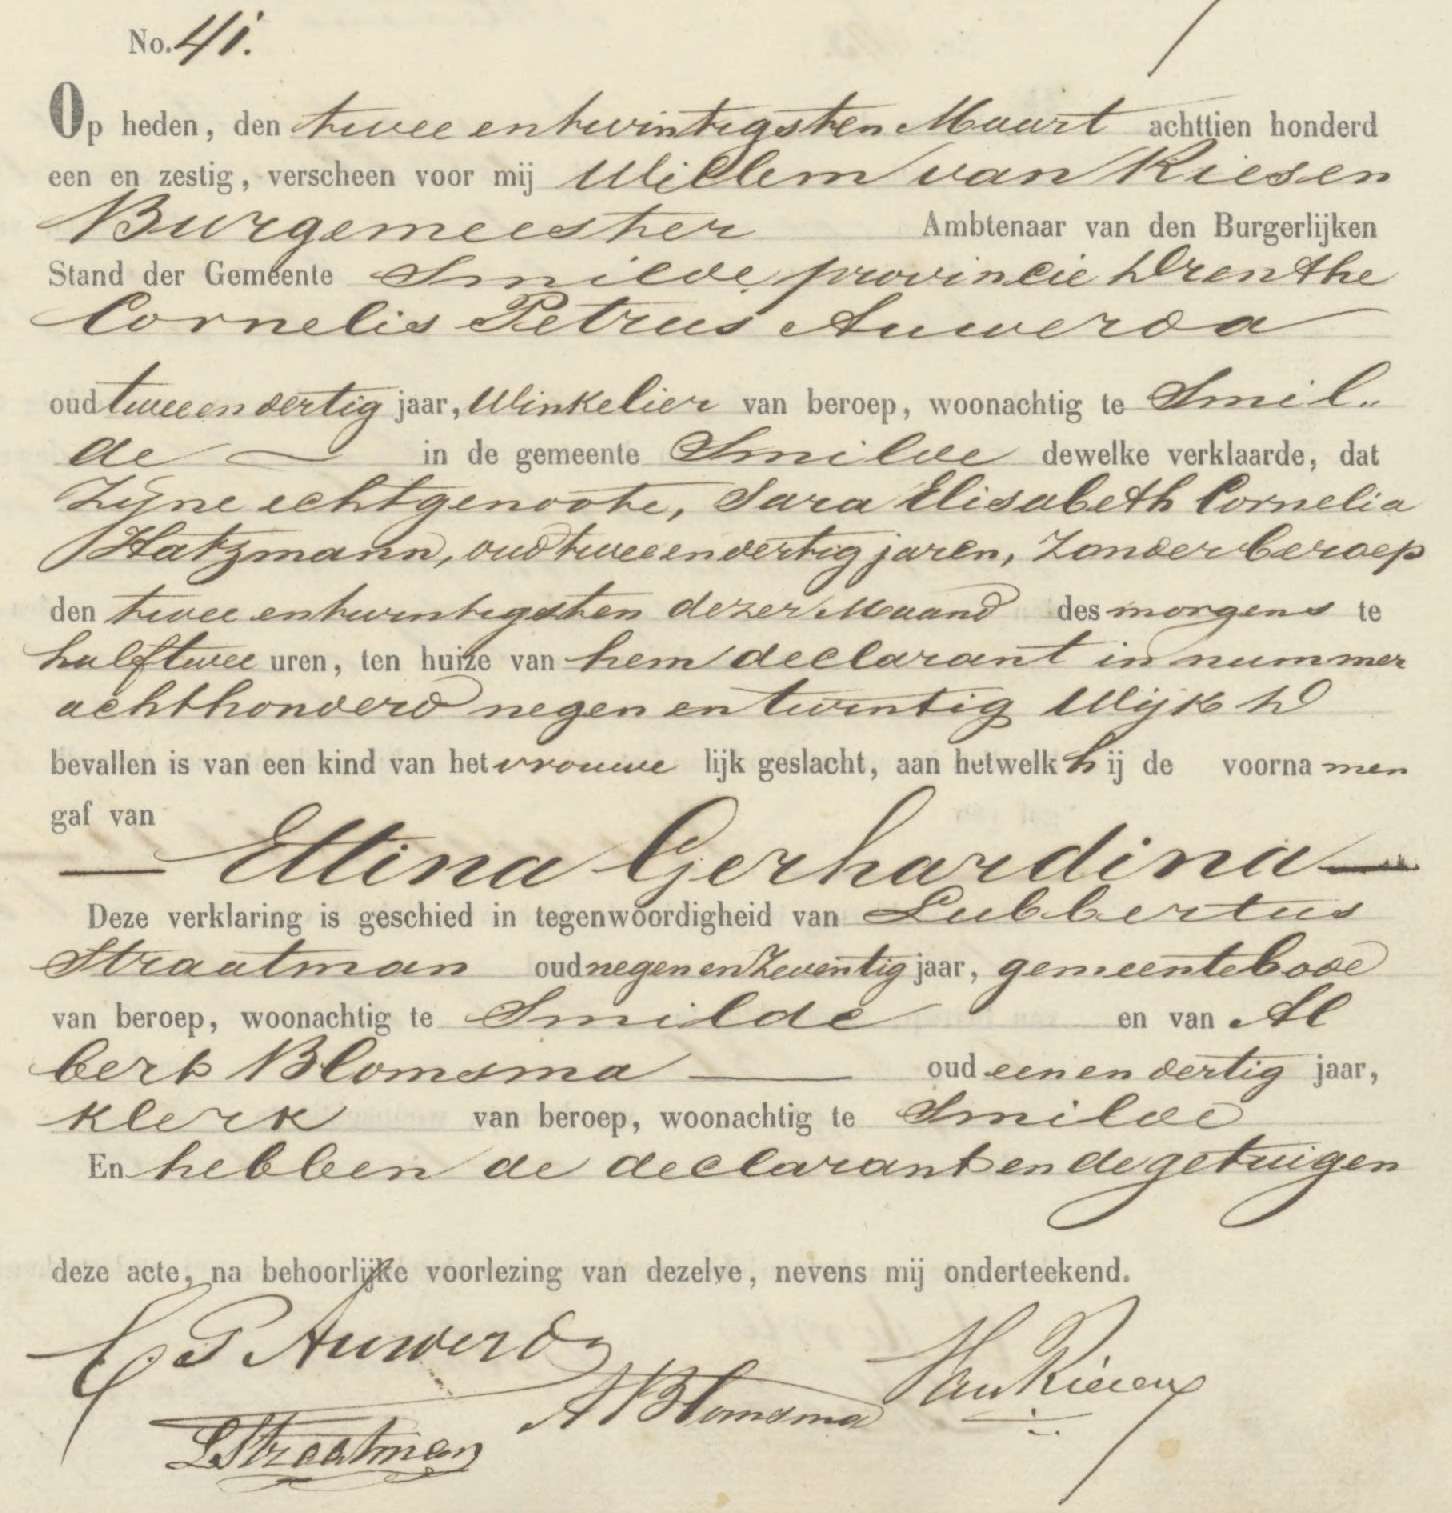 No. 41.
Op heden, den twee en twintigsten Maart achttien honderd
een en zestig, verscheen voor mij Willem van Riesen
Burgemeester Ambtenaar van den Burgerlijken
Stand der Gemeente Smilde, provincie Drenthe
Cornelis Petrus Auwerda
oud twee en dertig jaar, Winkelier van beroep, woonachtig te Smil„
de — in de gemeente Smilde dewelke verklaarde, dat
Zijne echtgenoote, Sara Elisabeth Cornelia
Hatzmann, oud twee en dertig jaren, Zonder beroep
den twee en twintigsten dezer Maand des morgens te
half twee uren, ten huize van hem declarant in nummer
achthonderd negen en twintig Wijk D
bevallen is van een kind van het vrouwelijk geslacht, aan hetwelk hij de voornamen
gaf van
— Ettina Gerhardina —
Deze verklaring is geschied in tegenwoordigheid van Lubbertus
Straatman oud negen en Zeventig jaar, gemeentebode
van beroep, woonachtig te Smilde en van Al
bert Blomsma — oud een en dertig jaar,
klerk van beroep, woonachtig te Smilde
En hebben de declarant en de getuigen
deze acte, na behoorlijke voorlezing van dezelve, nevens mij onderteekend.
C P Auwerda
A Blomsma Van Riesen
L Straatman